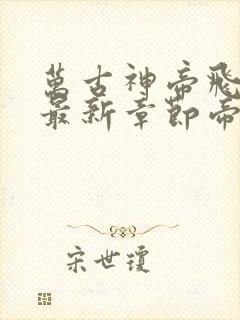 萬古神帝飛
最新章節帝
宋世瓊